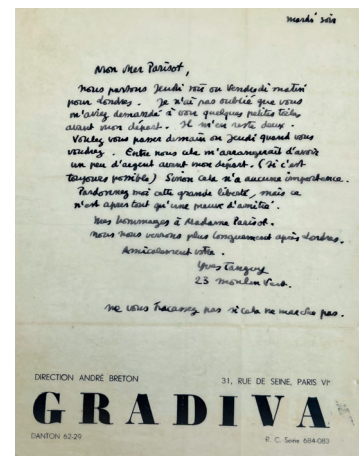 mardi soir
Mon cher Parisot,
nous partons Jeudi soir ou Vendredi matin
pour Londres. Je n'ai pas oublié que vous
m'aviez demandé à voir quelques petites toiles
avant mon départ. Il m'en reste deux.
Voulez vous passer demain ou Jeudi quand vous
voudrez. Entre nous cela m'arrangerait d'avoir
un peu d'argent avant mon départ. (Si c'est
toujours possible) Sinon cela n'a aucune importance.
Pardonnez moi cette grande liberté, mais ce
n'est après tout qu'une preuve d'amitié.
Mes hommages à Madame Parisot.
nous nous verrons plus longuement après Londres.
Amicalement votre.
Yves Tanguy
23 moulin Vert.
ne vous tracassez pas si cela ne marche pas.
DIRECTION ANDRÉ BRETON
31, RUE DE SEINE, PARIS VIe
GRADIVA
DANTON 62-29
R. C. Seine 684-083